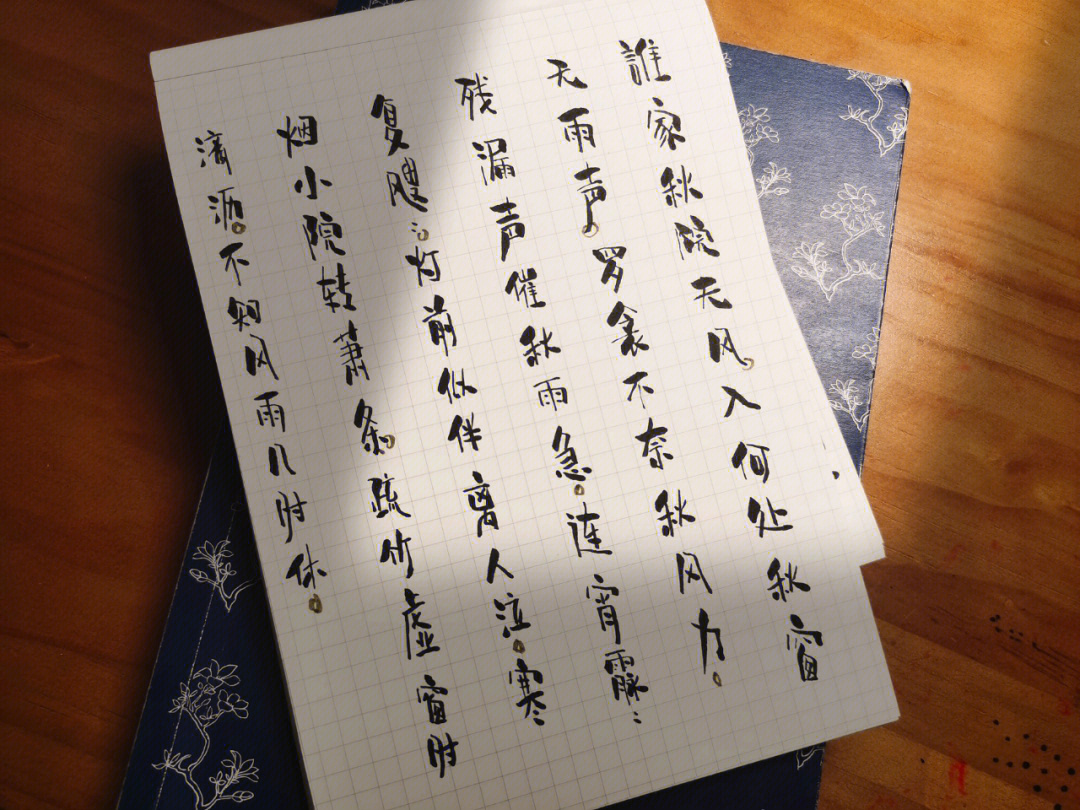 誰家秋院无风。入何处秋窗
无雨声。罗衾不奈秋风力。
残漏声催秋雨急。连宵霢〻
复飕〻。灯前似伴离人泣。寒
烟小院转萧条。疏竹虚窗时
滴沥。不知风雨几时休。